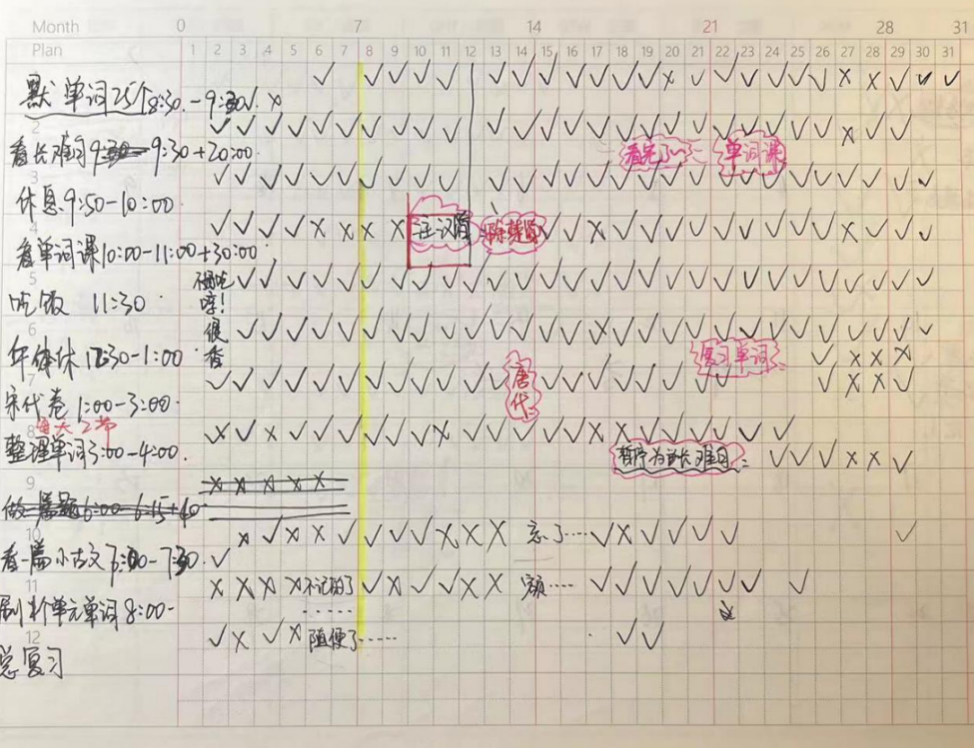 Month 0 7 14 21 28 31
Plan 1 2 3 4 5 6 7 8 9 10 11 12 13 14 15 16 17 18 19 20 21 22 23 24 25 26 27 28 29 30 31
默单词25个8:30.-9:30
2
看长难句9:30+20:00.
看完了~ 单词课
3
休息9:50-10:00
4
看单词课10:00-11:00+30:00
5
吃饭 11:30
很香
6
午休 12:30-1:00
复习单词
7
宋代卷 1:00-3:00
唐代
每天2节
8
整理单词3:00-4:00.
暂停为看长难句
9
做 篇题6:00-6:15+40
10
看一篇小古文7:00-7:30.
忘了····
11
刷新单元单词8:00-
不记的了
额····
12
总复习
随便了·····